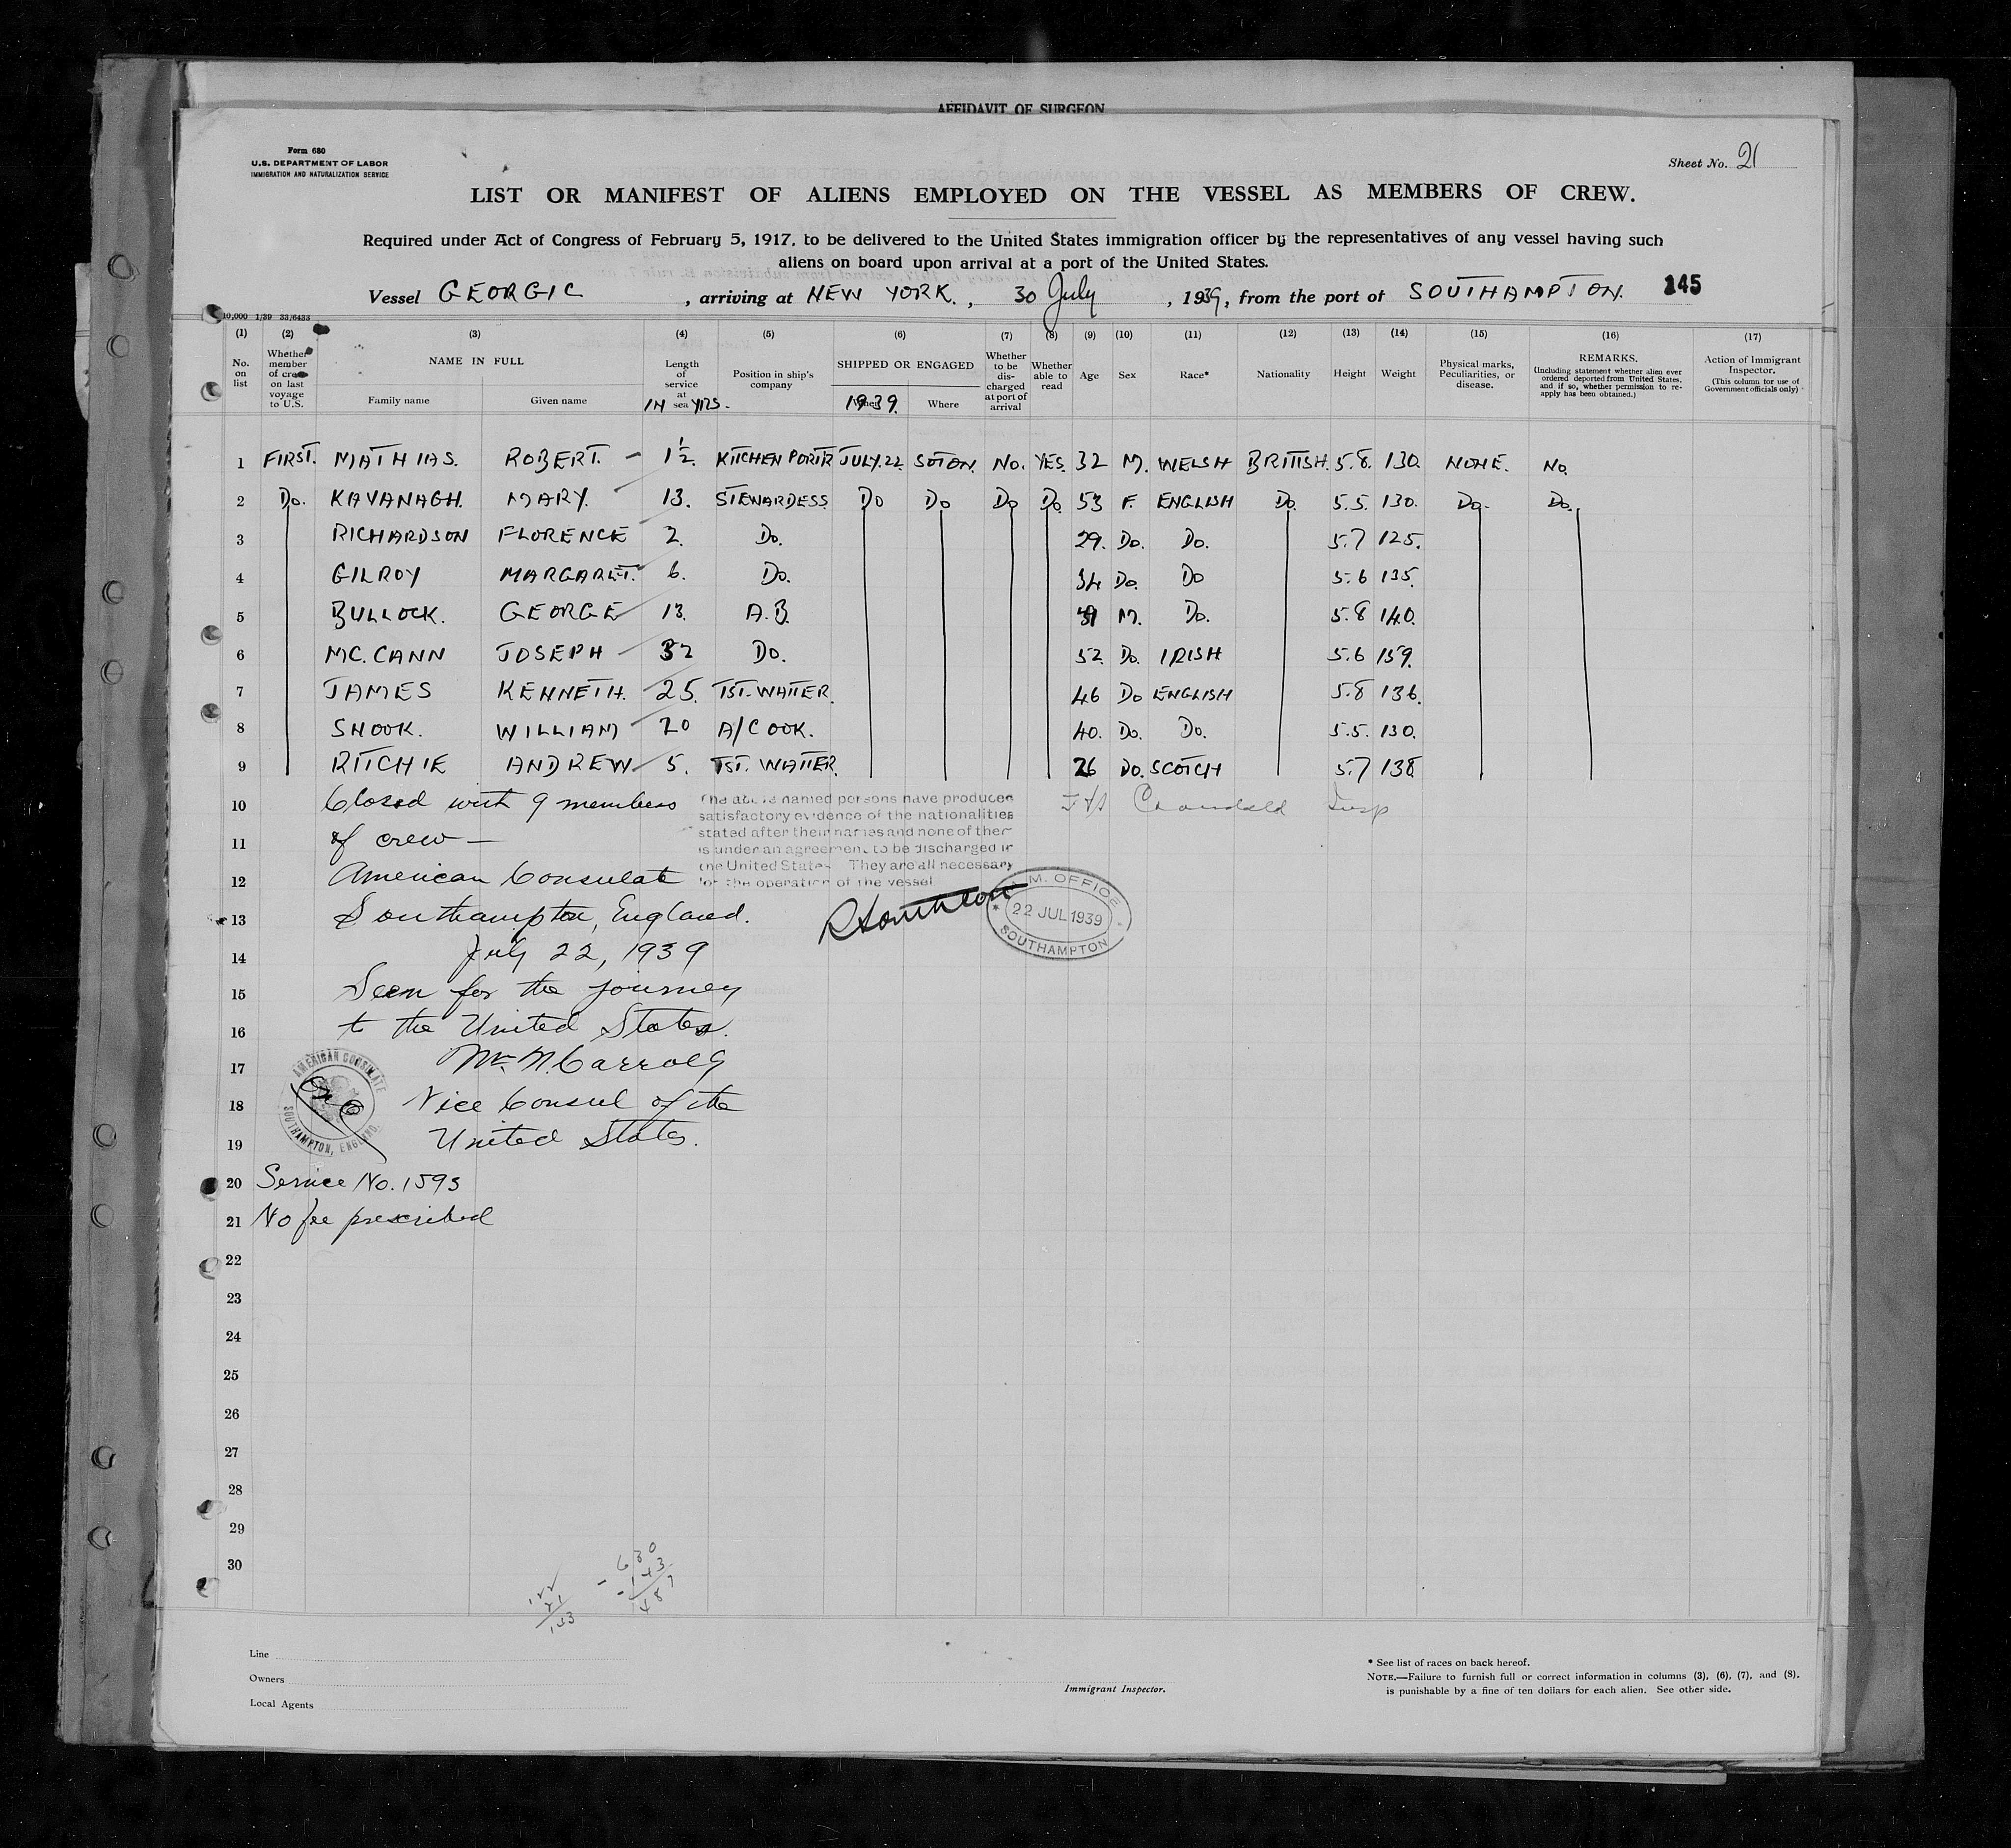 AFFIDAVIT OF SURGEON
Form 680
U.S. DEPARTMENT OF LABOR
IMMIGRATION AND NATURALIZATION SERVICE
Sheet No. 21
LIST OR MANIFEST OF ALIENS EMPLOYED ON THE VESSEL AS MEMBERS OF CREW.
Required under Act of Congress of February 5, 1917, to be delivered to the United States immigration officer by the representatives of any vessel having such
aliens on board upon arrival at a port of the United States.
Vessel GEORGIC, arriving at NEW YORK., 30 July, 1939, from the port of SOUTHAMPTON. 145
10,000 1/39 33/6433
(1) (2) (3) (4) (5) (6) (7) (8) (9) (10) (11) (12) (13) (14) (15) (16) (17)
No. on list
Whether member of crew on last voyage to U.S.
NAME IN FULL
Family name Given name
Length of service at sea
IN YRS.
Position in ship's company
SHIPPED OR ENGAGED
When Where
1939.
Whether to be discharged at port of arrival
Whether able to read
Age
Sex
Race*
Nationality
Height
Weight
Physical marks, Peculiarities, or disease.
REMARKS.
(Including statement whether alien ever ordered deported from United States, and if so, whether permission to re-apply has been obtained.)
Action of Immigrant Inspector.
(This column for use of Government officials only)
1 FIRST. MATHIAS. ROBERT. 1½ KITCHEN PORTR JULY.22 SOTON. No. YES. 32 M. WELSH BRITISH. 5.8. 130. NONE. No.
2 Do. KAVANAGH. MARY. 13. STEWARDESS Do Do Do Do. 53 F. ENGLISH Do. 5.5. 130. Do. Do.
3 RICHARDSON FLORENCE 2. Do. 29. Do. Do. 5.7 125.
4 GILROY MARGARET. 6. Do. 34 Do. Do 5.6 135.
5 BULLOCK. GEORGE 13. A.B. M. Do. 5.8 140.
6 MC.CANN JOSEPH 32 Do. 52 Do. IRISH 5.6 159.
7 JAMES KENNETH. 25. TST.WAITER. 46 Do ENGLISH 5.8 136.
8 SNOOK. WILLIAM 20 A/COOK. 40. Do. Do. 5.5. 130.
9 RITCHIE ANDREW 5. TST. WAITER. 26 Do. SCOTCH 5.7 138
10 Closed with 9 members
11 of crew —
12 American Consulate
13 Southampton, England.
14 July 22, 1939
15 Seen for the journey
16 to the United States.
17 Wm. N. Carroll
18 Vice Consul of the
19 United States.
20 Service No. 1593
21 No fee prescribed
22
23
24
25
26
27
28
29
30
The above named persons have produced
satisfactory evidence of the nationalities
stated after their names and none of them
is under an agreement to be discharged in
the United States They are all necessary
for the operation of the vessel
Insp
M. OFFICE
22 JUL 1939
SOUTHAMPTON
AMERICAN CONSULATE
SOUTHAMPTON, ENGLAND.
630
143
487
Line
Owners
Local Agents
Immigrant Inspector.
* See list of races on back hereof.
NOTE.—Failure to furnish full or correct information in columns (3), (6), (7), and (8),
is punishable by a fine of ten dollars for each alien. See other side.